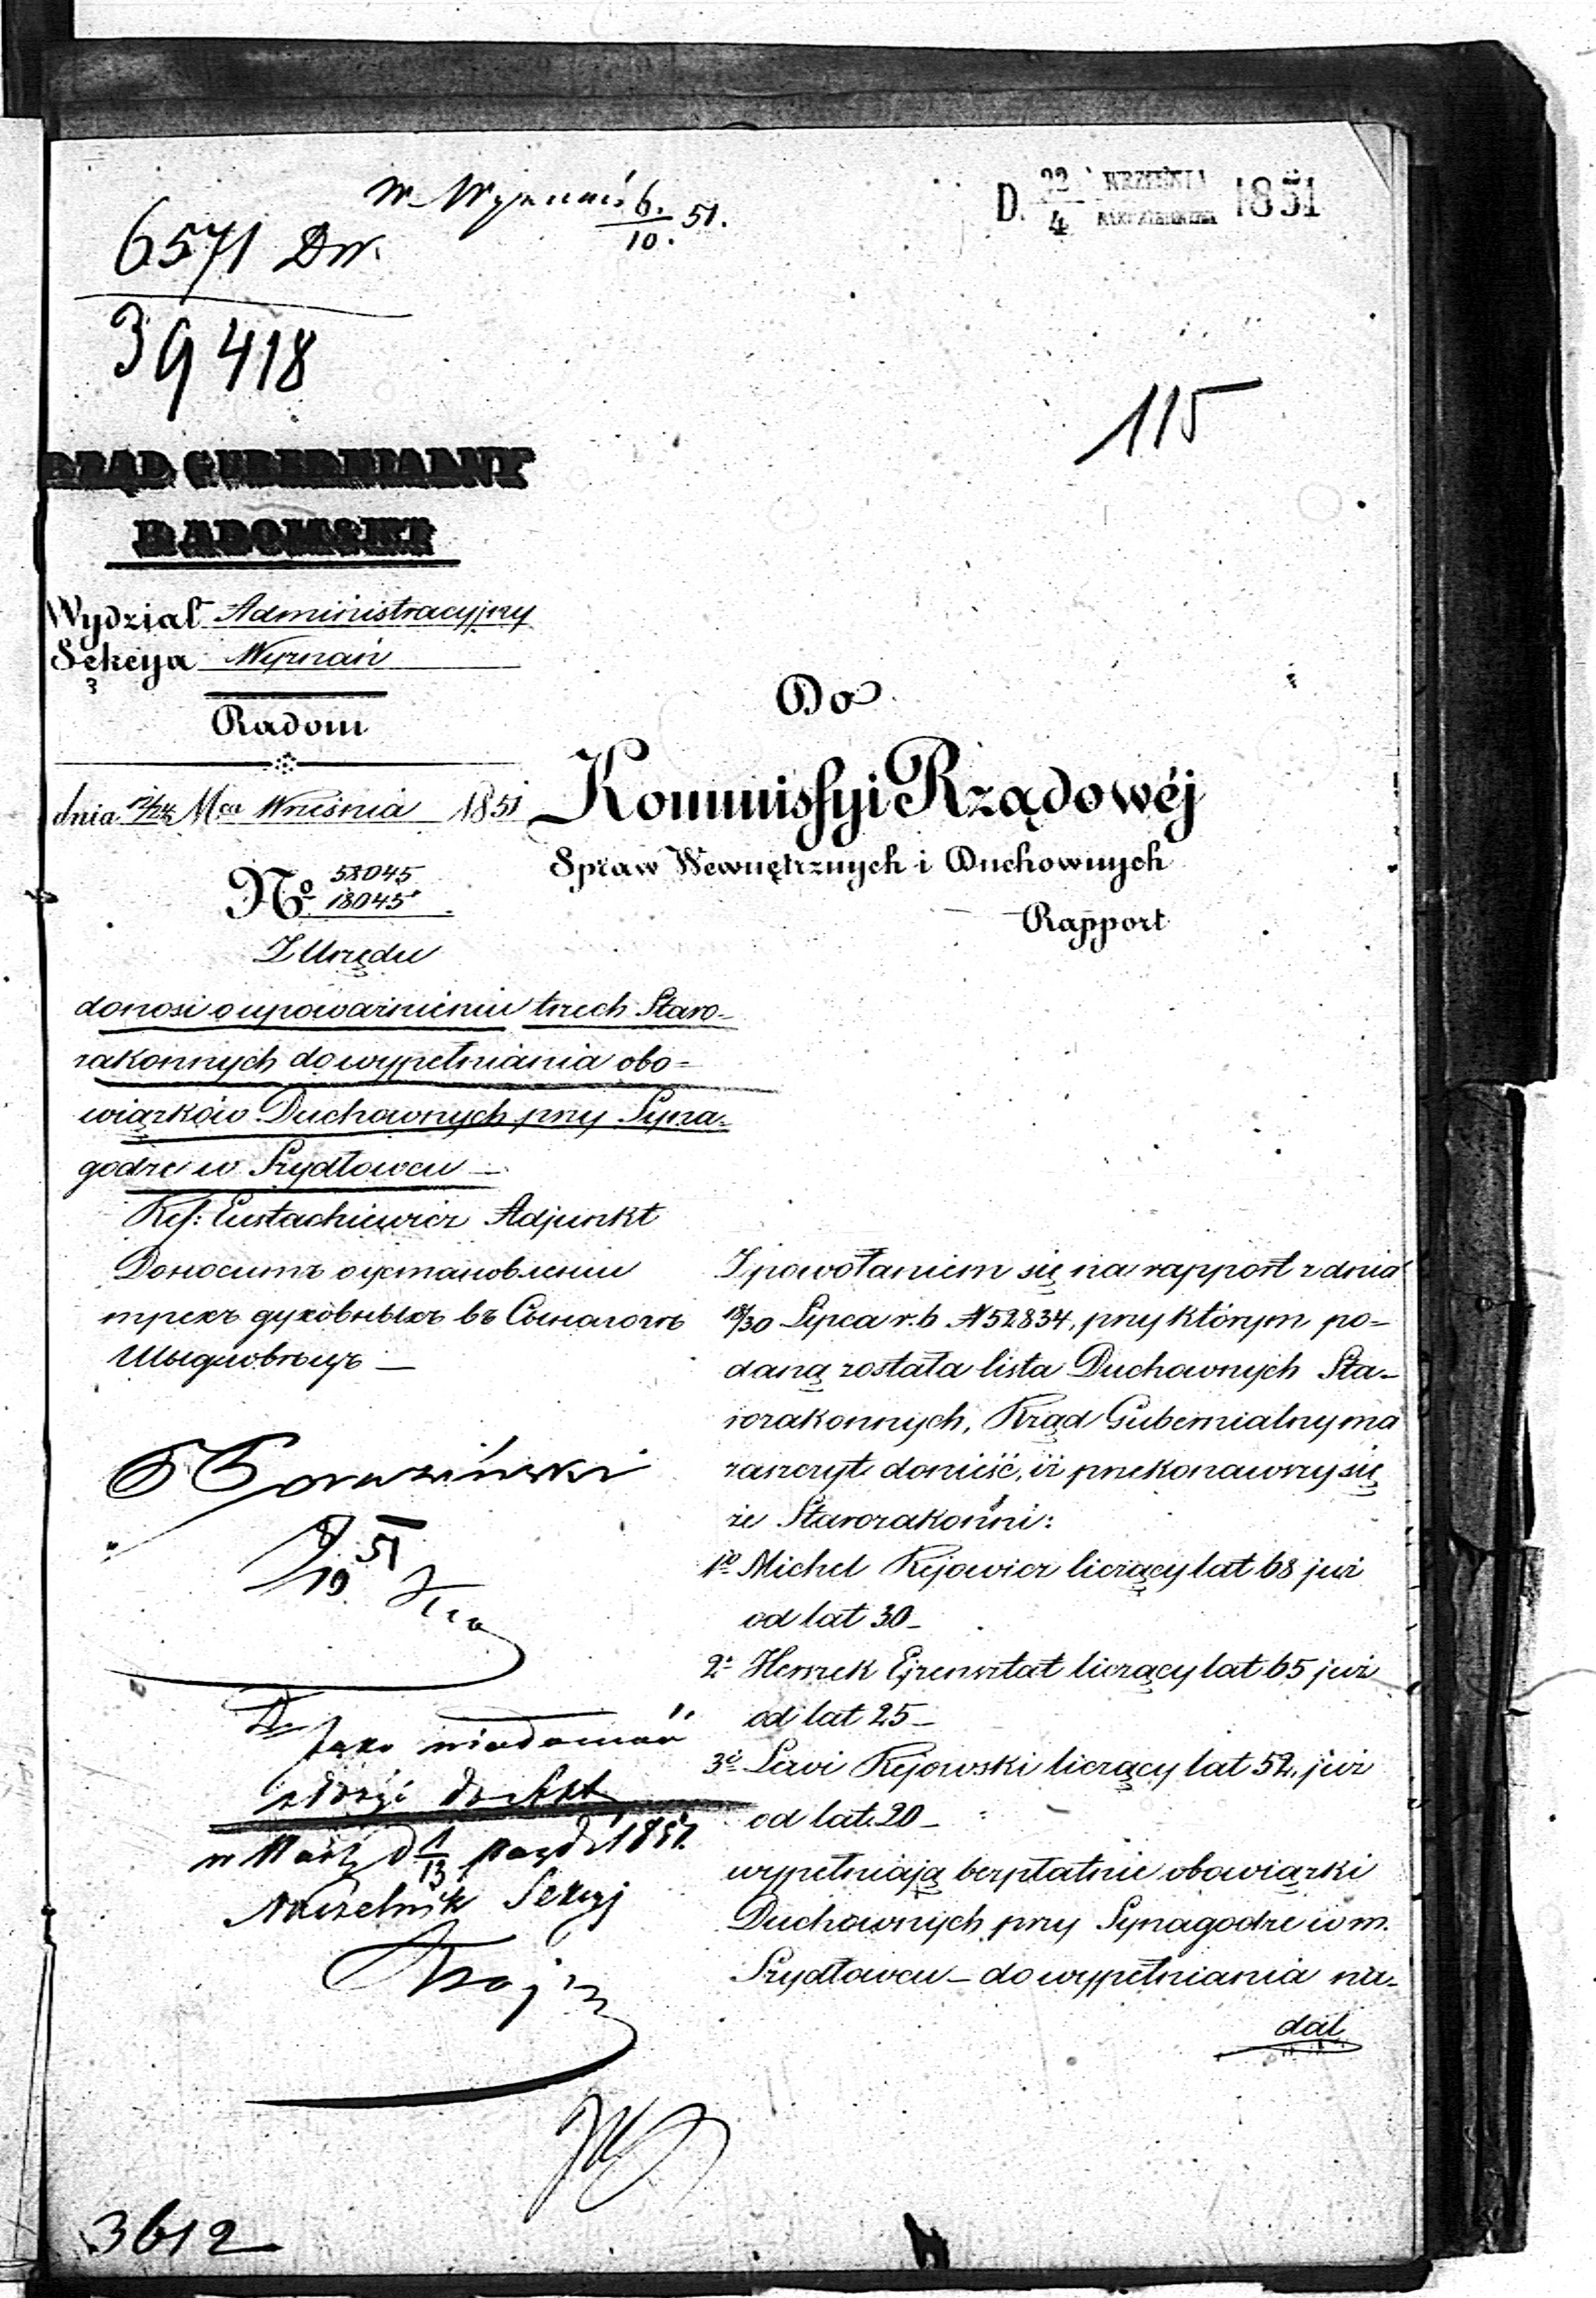 6571 Dw.
39418
W. Wyznań 6./10. 51.
D. 22/4 WRZEŚNIA 1851
115
RZĄD GUBERNIALNY
RADOMSKI
Wydział Administracyjny
Sekcya Wyznań
Radom
dnia 12/24 Mca Września 1851
No 58045
18045
Z Urzędu
donosi o upoważnieniu trzech Staro-
zakonnych do wypełniania obo=
wiązków Duchownych przy Syna-
godze w Szydłowcu —
Ref: Eustachiewicz Adjunkt
Доноситъ о установленіи
трехъ духовныхъ въ Сынагогѣ
Шыдловѣцъ —
8/10 51
Jako wiadomość
złożyć do Akt
w Warsz. d. 1/13 Paźd. 1851.
Naczelnik Sekcyj
3612
Do
Kommissyi Rządowéj
Spraw Wewnętrznych i Duchownych
Rapport
Z powołaniem się na rapport z dnia
18/30 Lipca r. b N 52834, przy którym po-
daną została lista Duchownych Sta-
rozakonnych, Rząd Gubernialny ma
zaszczyt donieść, iż przekonawszy się
że Starozakonni:
1o Michel Kejowicz liczący lat 68 już
od lat 30 –
2o Herszek Ejzensztat liczący lat 65 już
od lat 25 –
3o Lewi Kejowski liczący lat 52, już
od lat 20 –
wypełniają bezpłatnie obowiązki
Duchownych przy Synagodze w m.
Szydłowcu – do wypełniania na-
dal